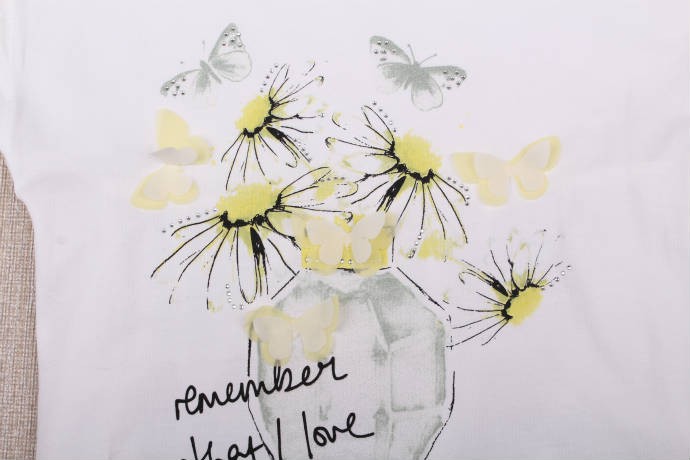 remember
what I love